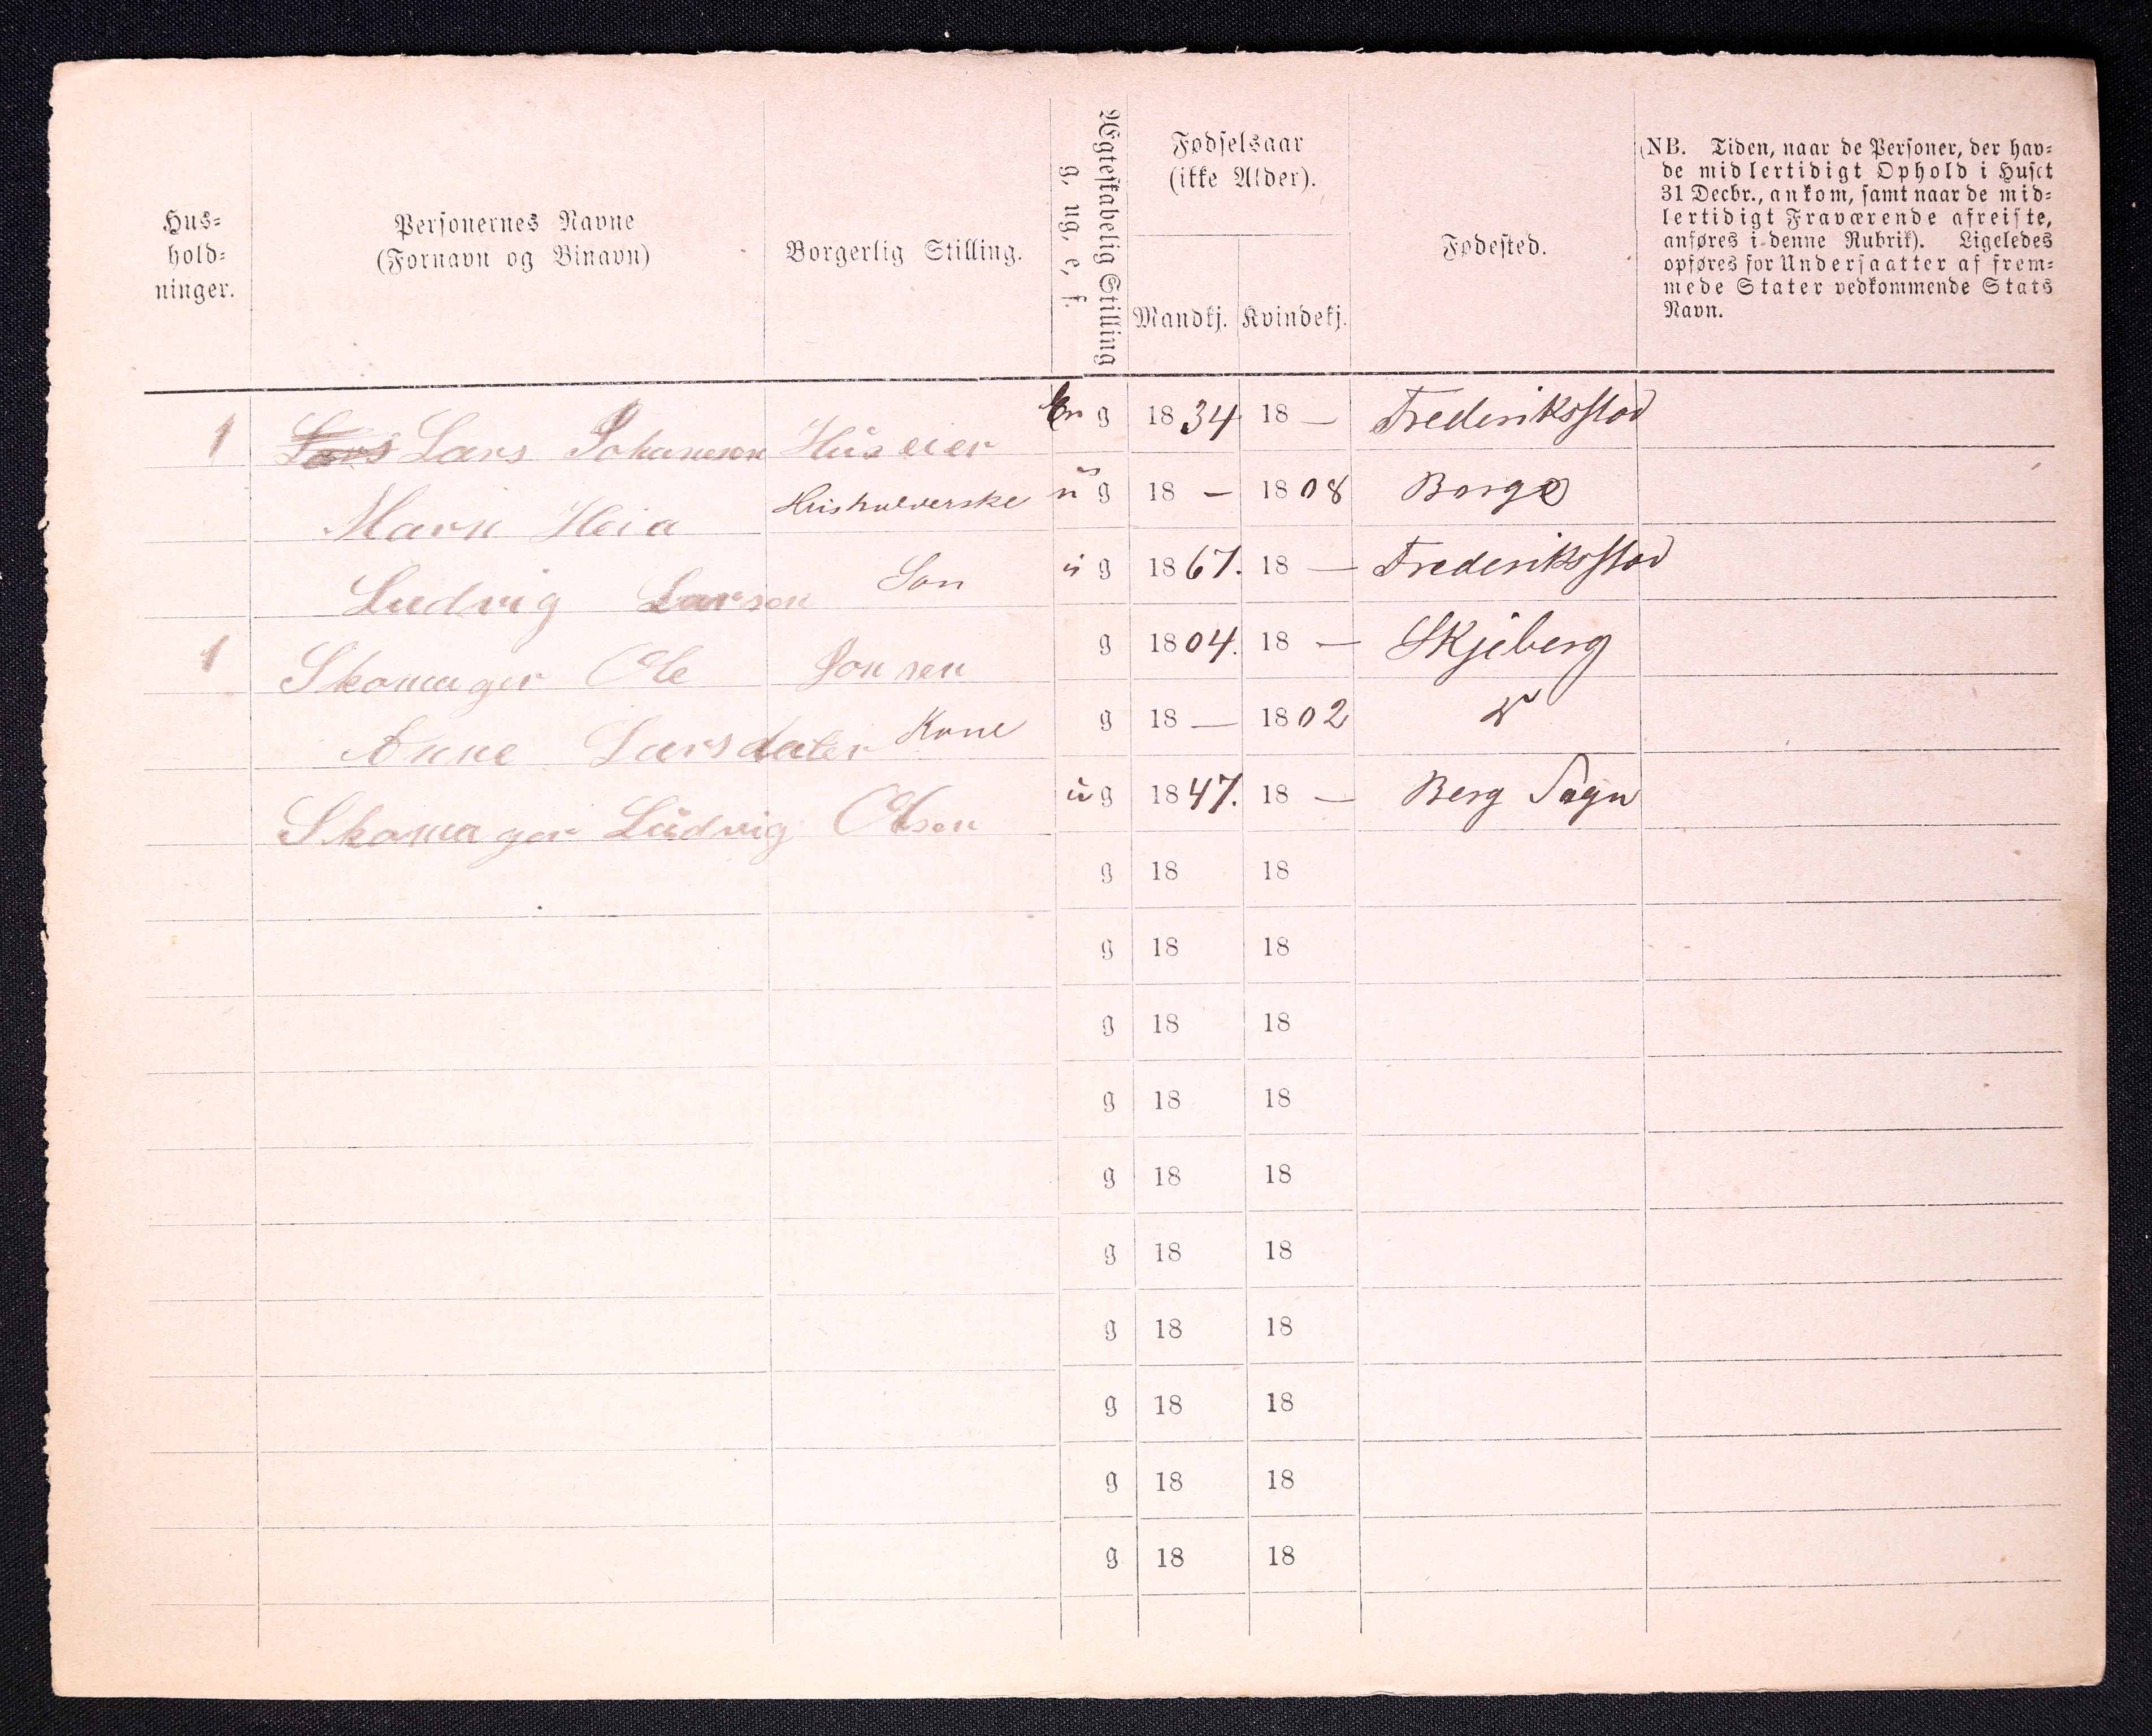 Hus-
hold-
ninger.
Personernes Navne
(Fornavn og Binavn)
Borgerlig Stilling.
Ægteskabelig Stilling
g, ug, e, f.
Fødselsaar
(ikke Alder).
Mandkj. Kvindekj.
Fødested.
(NB. Tiden, naar de Personer, der hav-
de midlertidigt Ophold i Huset
31 Decbr., ankom, samt naar de mid-
lertidigt Fraværende afreiste,
anføres i denne Rubrik). Ligeledes
opføres for Undersaatter af frem-
mede Stater vedkommende Stats
Navn.
1 Lars Lars Johannesen Huseier g 1834 18 — Frederiksstad
Maren Heia Husholderske u g 18 — 1808 Borge
Ludvig Larsen Son u g 1867. 18 — Frederiksstad
1 Skomager Ole Jonsen g 1804. 18 — Skjeberg
Anne Larsdater Kone g 18 — 1802
Skomager Ludvig Olsen u g 1847. 18 — Berg Sogn
g 18 18
g 18 18
g 18 18
g 18 18
g 18 18
g 18 18
g 18 18
g 18 18
g 18 18
g 18 18